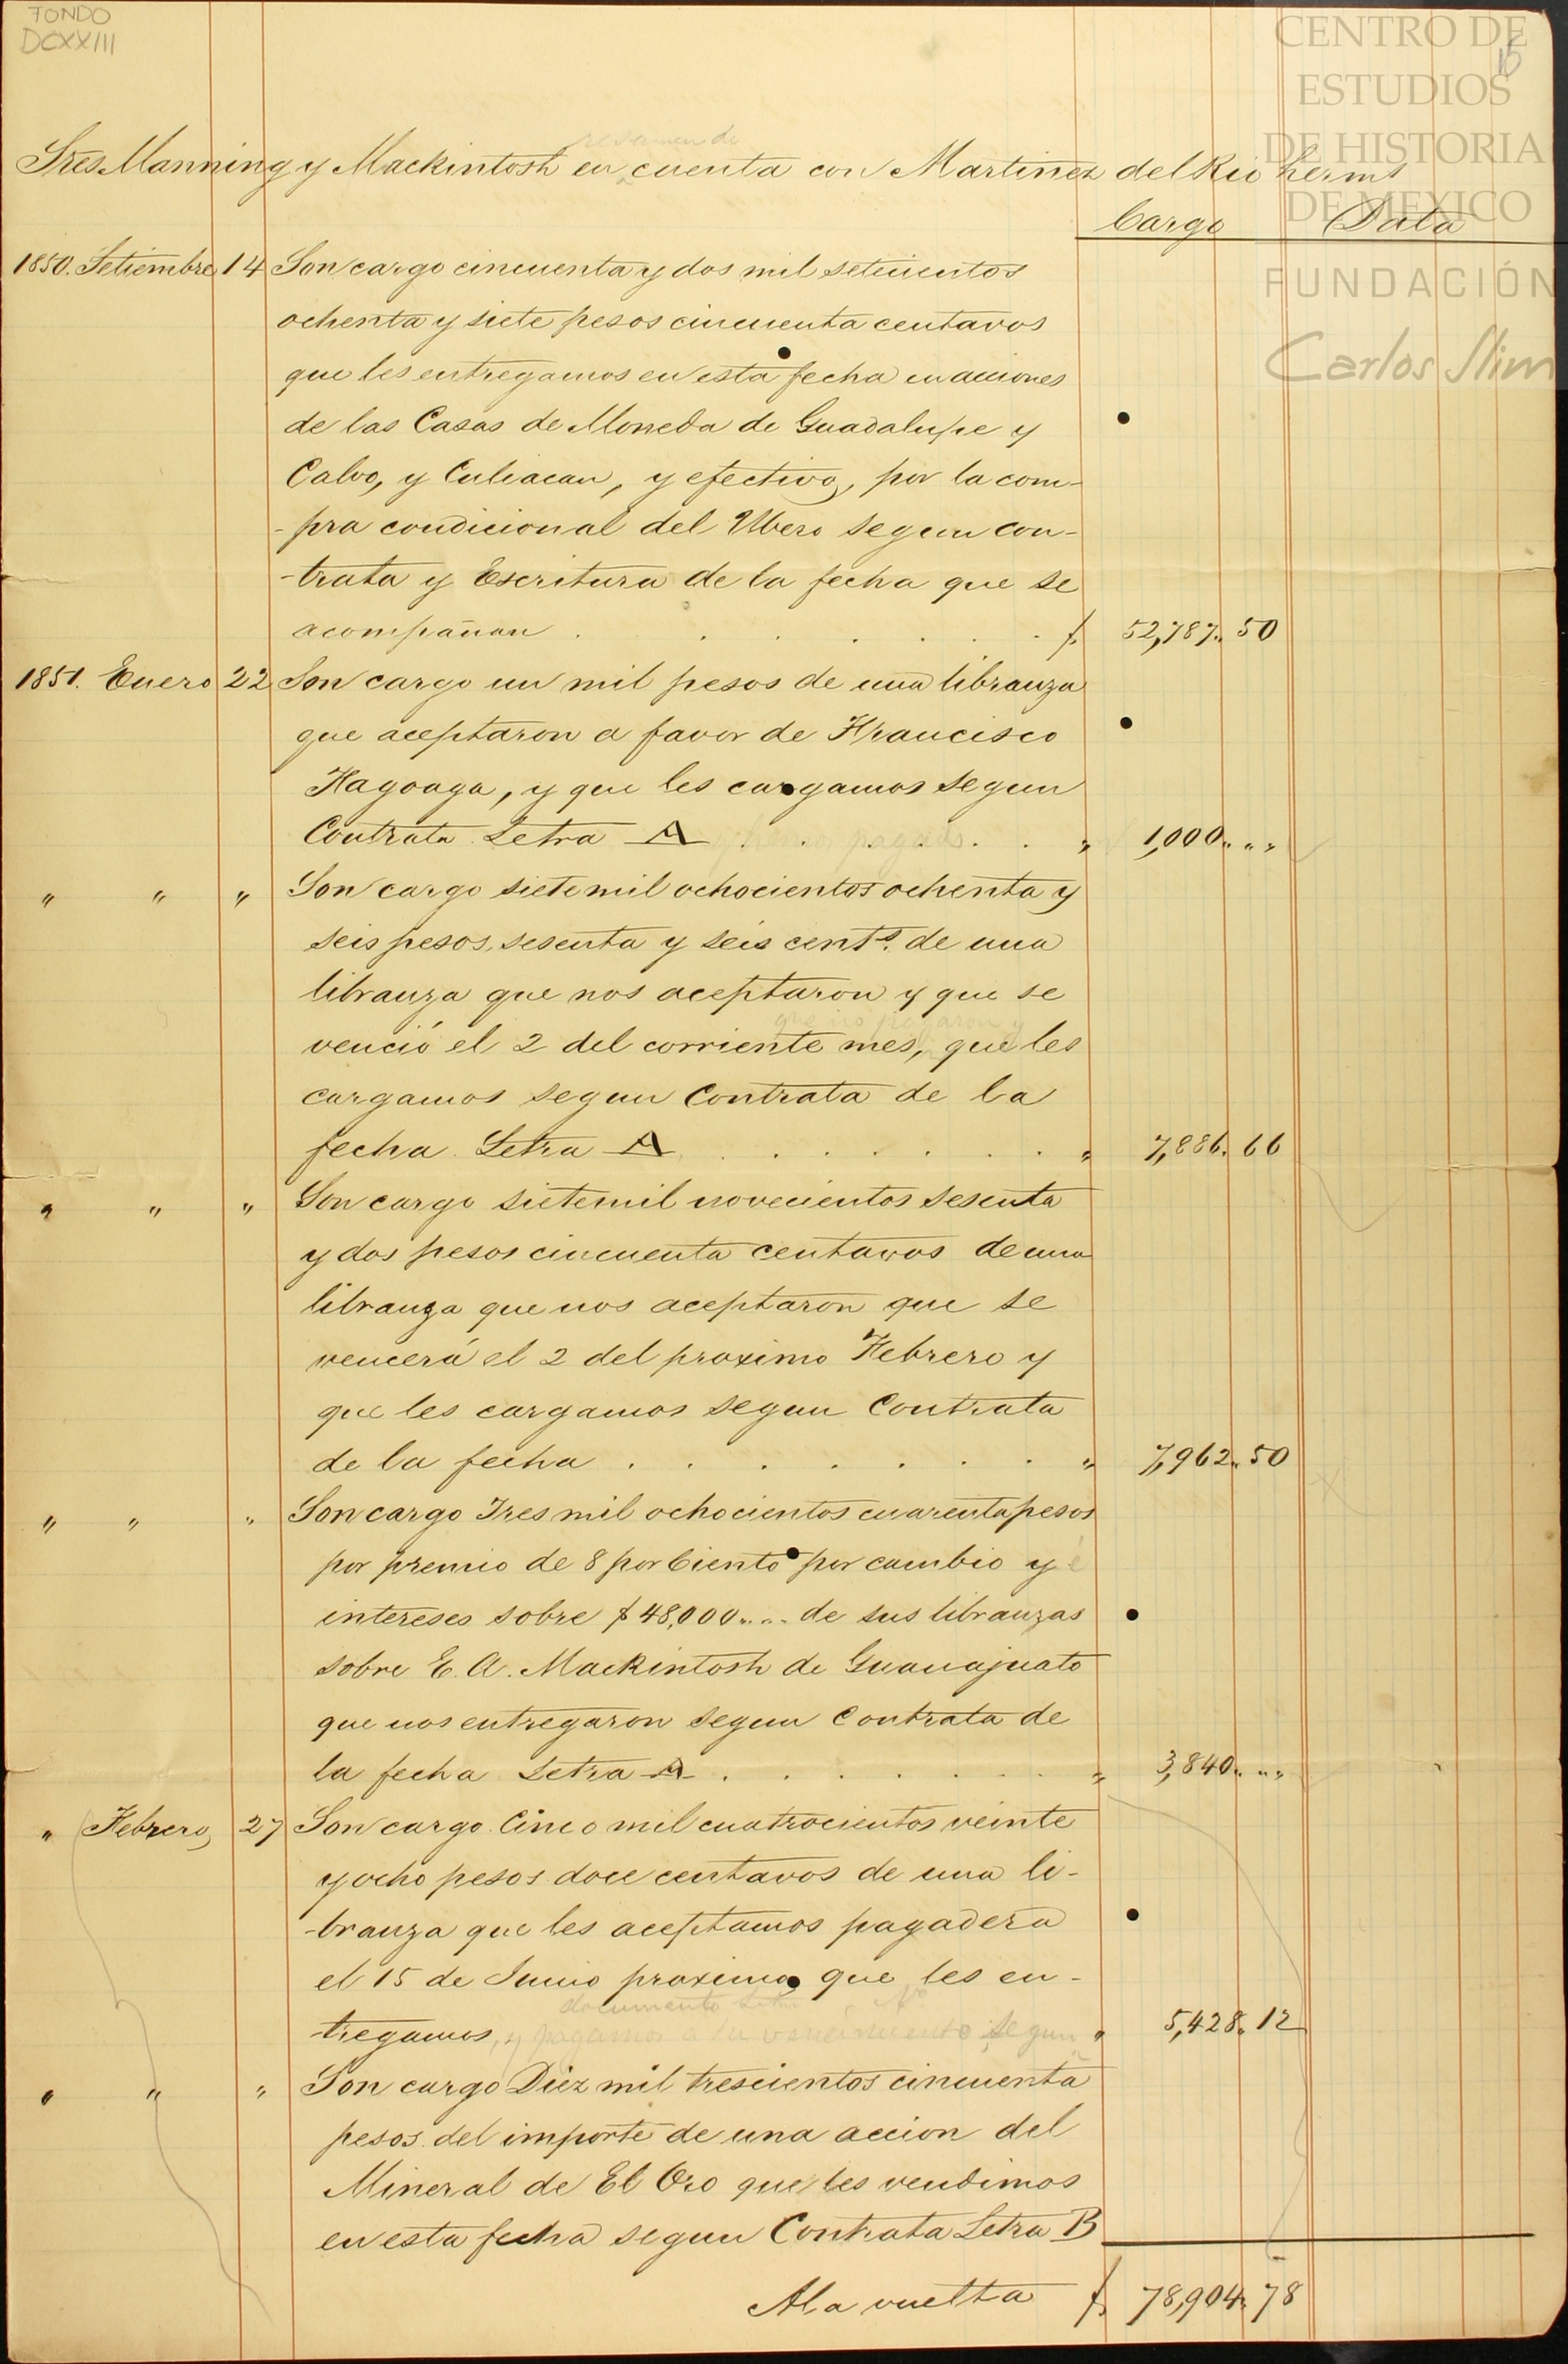 FONDO
DCXXIII
CENTRO DE
ESTUDIOS
DE HISTORIA
DE MEXICO
FUNDACIÓN
Carlos Slim
resumen de
Sres. Manning y Mackintosh en cuenta con Martinez del Rio herms
Cargo Data
1850. Setiembre 14 Son cargo cincuenta y dos mil setecientos
ochenta y siete pesos cincuenta centavos
que les entregamos en esta fecha en acciones
de las Casas de Moneda de Guadalupe y
Calvo, y Culiacan, y efectivo, por la com-
-pra condicional del Ubero segun con-
-trata y Escritura de la fecha que se
acompañan . . . . . . $ 52,787.. 50
1851. Enero 22 Son cargo un mil pesos de una libranza
que aceptaron a favor de Francisco
Fagoaga, y que les cargamos segun
Contrata Letra A y hemos pagado . . " 1,000.. " "
" " " Son cargo siete mil ochocientos ochenta y
seis pesos, sesenta y seis cents. de una
libranza que nos aceptaron y que se
que no pagaron y
venció el 2 del corriente mes, que les
cargamos segun Contrata de la
fecha Letra A . . . . . . . " 7,886. 66
" " " Son cargo siete mil novecientos sesenta
y dos pesos cincuenta centavos de una
libranza que nos aceptaron que se
vencerá el 2 del proximo Febrero y
que les cargamos segun Contrata
de la fecha . . . . . . . " 7,962.. 50
" " " Son cargo Tres mil ochocientos cuarenta pesos
por premio de 8 por Ciento por cambio y é
intereses sobre $ 48,000.... de sus libranzas
sobre E. A. Mackintosh de Guanajuato
que nos entregaron segun Contrata de
la fecha Letra A . . . . . . " 3,840.. " "
" Febrero 27 Son cargo Cinco mil cuatrocientos veinte
y ocho pesos doce centavos de una li-
-branza que les aceptamos pagadera
el 15 de Junio proximo, que les en-
documento
tregamos, y pagamos a su vencimiento segun " 5,428. 12
" " " Son cargo Diez mil trescientos cincuenta
pesos del importe de una accion del
Mineral de El Oro que les vendimos
en esta fecha segun Contrata Letra B
A la vuelta $ 78,904. 78